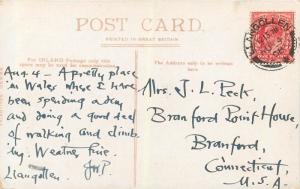 POST CARD.
PRINTED IN GREAT BRITAIN
For INLAND Postage only this
The Address only to be written
Aug. 4 - A pretty place
in Wales where I have
been spending a day
and doing a good deal
of walking and climb-
ing. Weather fine.
Llangollen.
LLANGOLLEN
Mrs. J. L. Peck,
Branford Point House,
Branford,
Connecticut,
U.S.A.